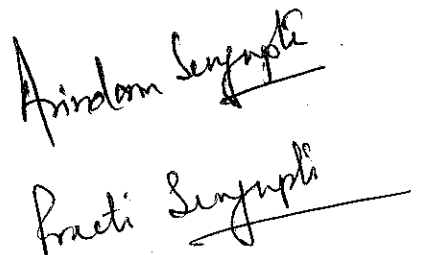 Arindam Sengupta
Prachi Sengupta